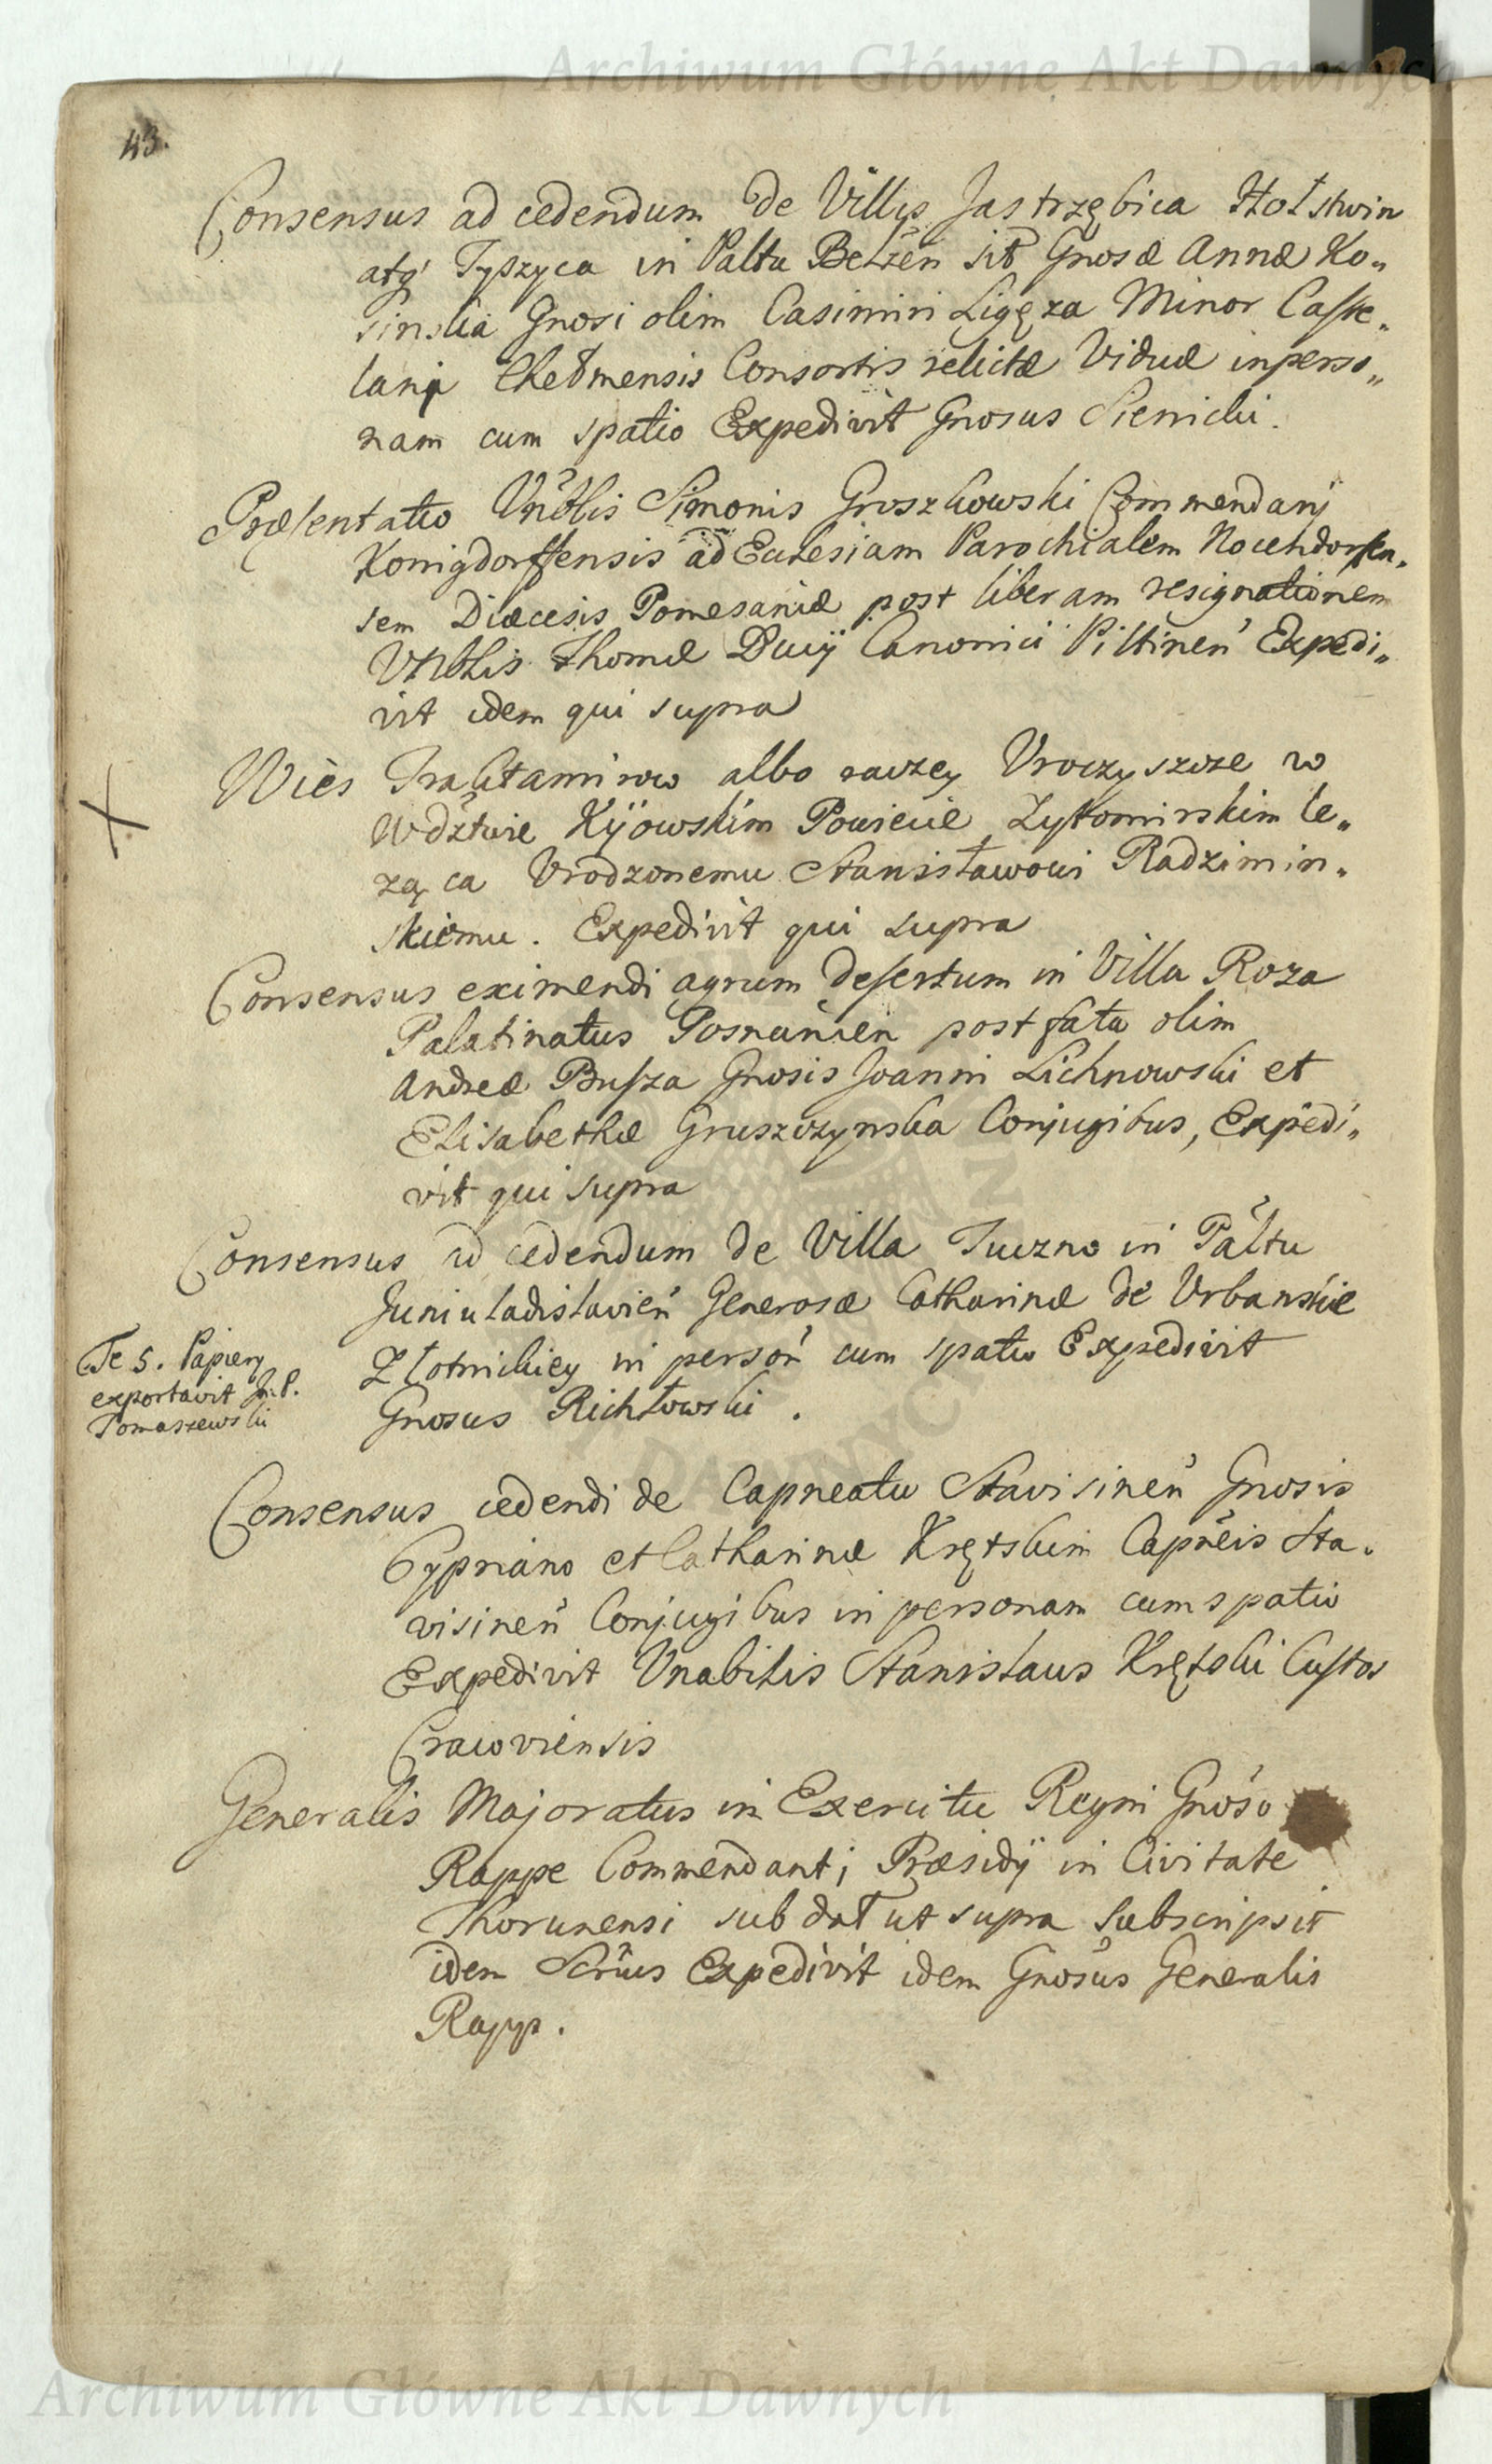 Archiwum Główne Akt Dawnych
43.
Consensus ad cedendum de Villis Jastrzębica Hołstwin
atq' Tyszyca in Paltu Belzen sit Gnosæ Annæ Ko„
sinskia Gnosi olim Casimiri Ligęza Minor Caste„
lani Chełmensis Consortis relictæ Viduæ in perso„
nam cum spatio Expedivit Gnosus Sienicki.
Præsentatio Vnblis Simonis Groszkowski Commendarij
Konigdorffensis ad Eccłesiam Parochialem
sem Diæcesis Pomesaniæ post liberam resignationem
Vnblis Thomæ Canonici Piltinen Expedi„
vit idem qui supra
Wies Trachtamirow albo raczey Vroczyszcze w
Wdztwie Kijowskim Powiecie Zytomirskim le„
zą ca Vrodzonemu Stanisławowi Radzimin„
skiemu. Expedivit qui supra
Consensus eximendi agrum desertum in Villa Roza
Palatinatus Posnanien post fata olim
Andreæ Busza Gnosis Joanni Lichnowski et
Elisabethæ Gruszczynska Conjugibus, Expedi„
vit qui supra
Consensus ad cedendum de Villa Tuczno in Paltu
Juniuladislavien Generosæ Catharinæ de Vrbanskie
Złotnickiey in person cum spatio Expedivit
Gnosus Richłowski.
Te 5. Papiery
exportavit J. P.
Tomaszewski
Consensus cedendi de Capneatu Stavisinen Gnosis
Cypriano et Catharinæ Krętskim Capneis Sta„
visinen Conjugibus in personam cum spatio
Expedivit Vnabilis Stanislaus Krętski Custos
Cracoviensis
Generalis Majoratus in Exercitu Regni Gnoso
Rappe Commendanti Præsidij in Civitate
Thorunensi sub dat ut supra Subscripsit
idem Scrius Expedivit idem Gnosus Generalis
Rapp.
Archiwum Główne Akt Dawnych